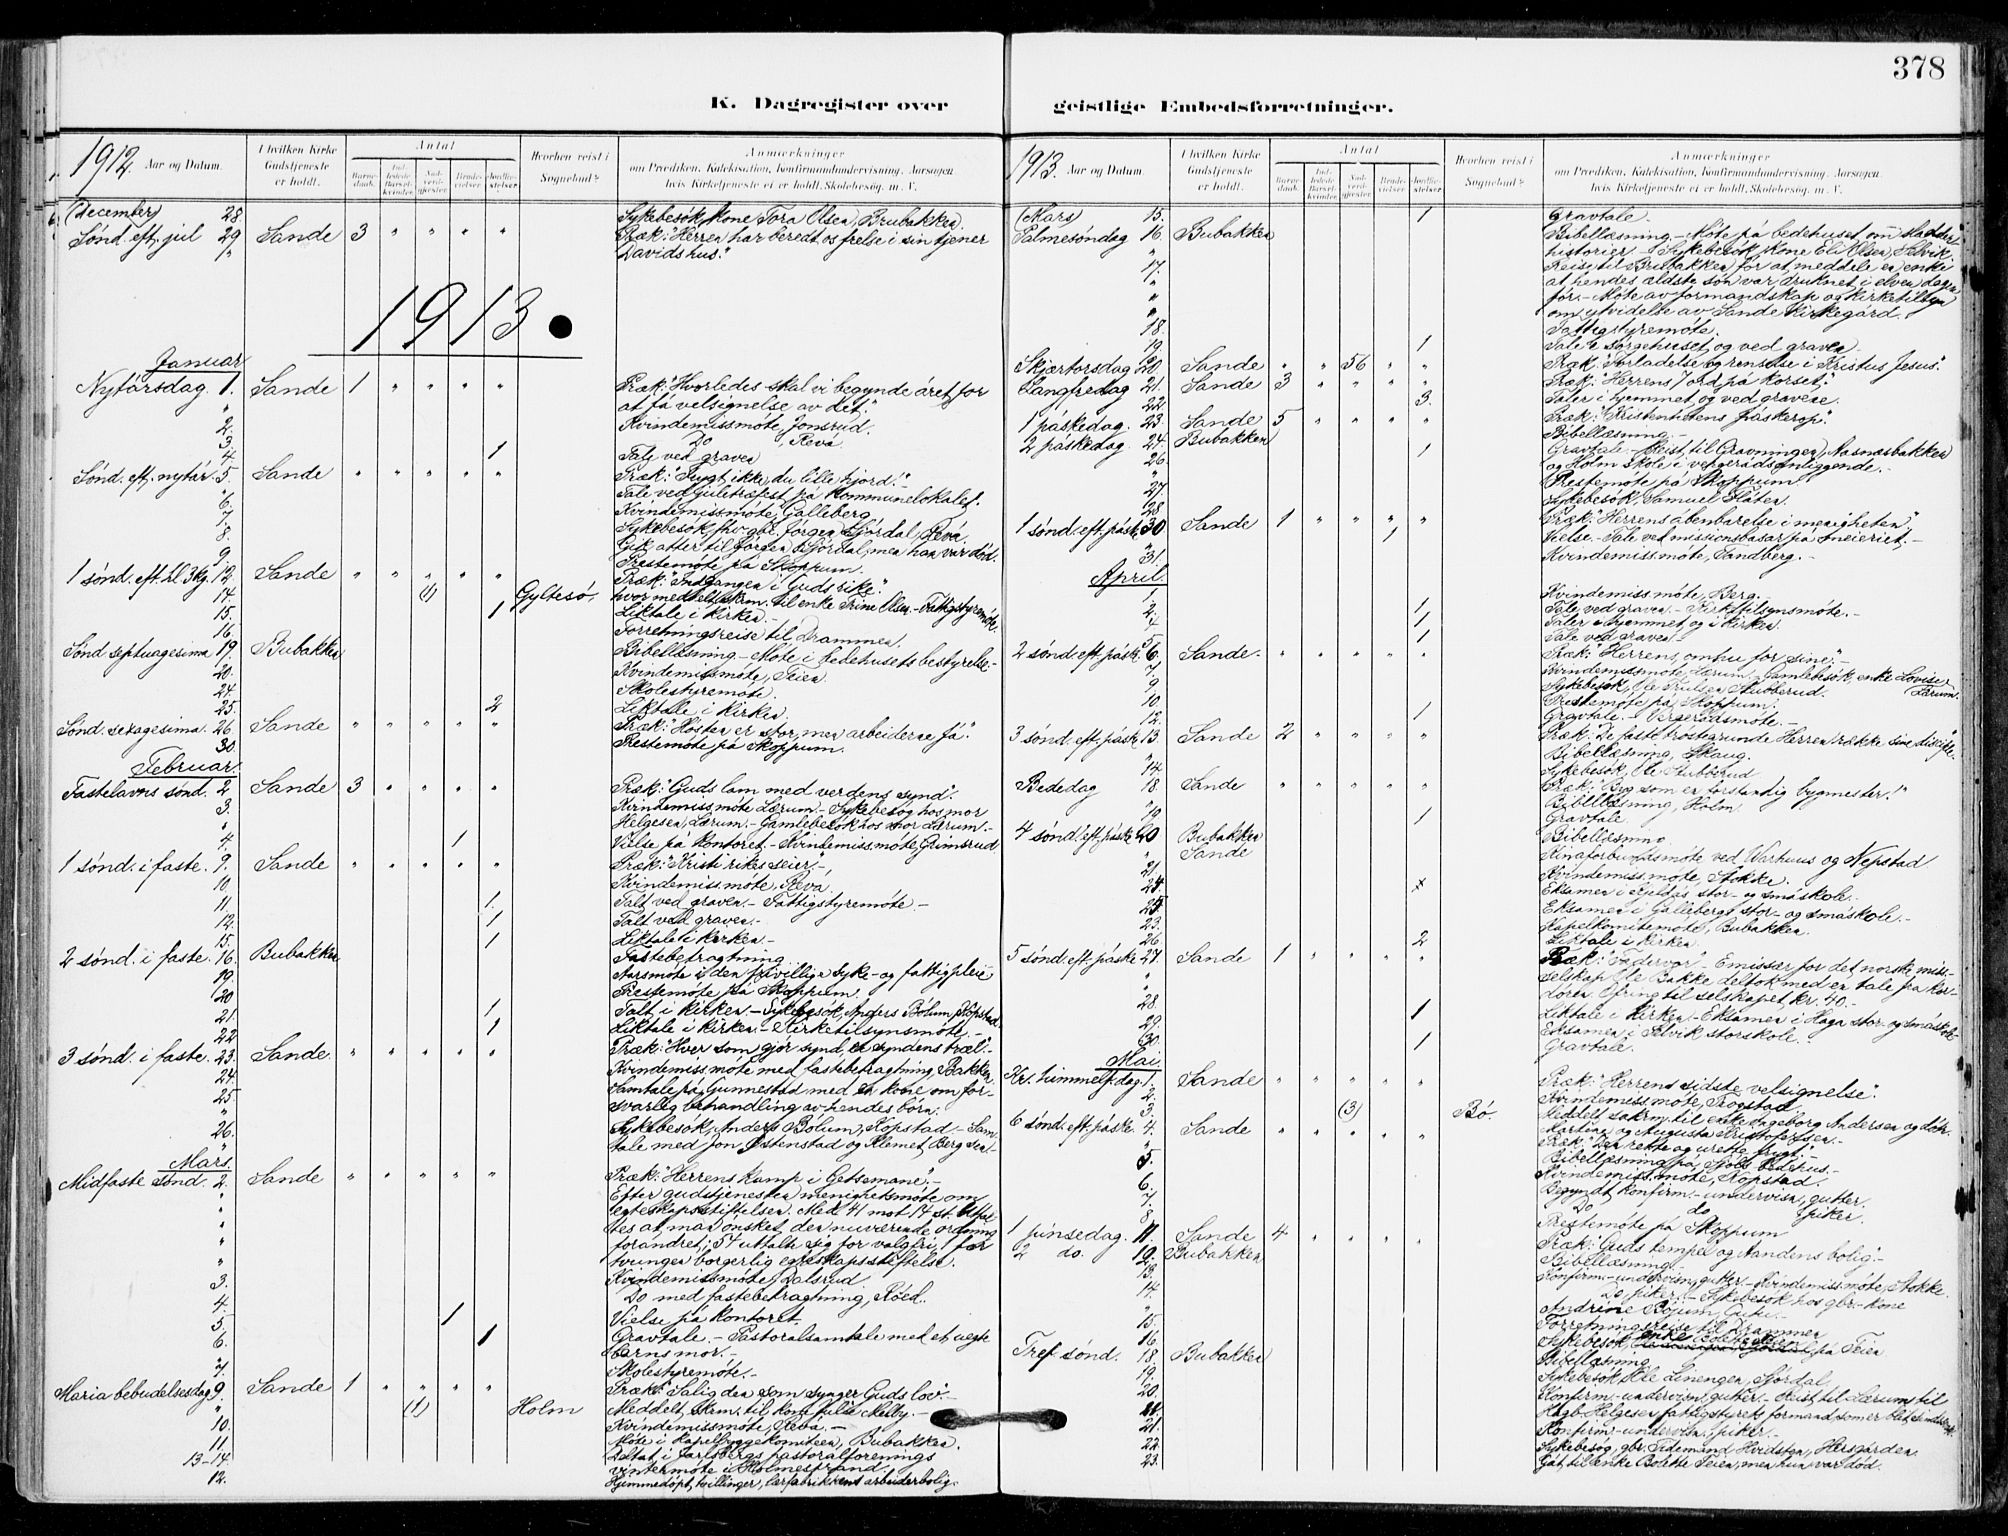 378
K. Dagregister over geistlige Embedsforretninger.
1912. Aar og Datum.
I hvilken Kirke Gudstjeneste er holdt.
Antal
Barnedaab.
Indledede Barselkvinder.
Nadverdgjester
Brudevielser.
Jordfæstelser
Hvorhen reist i Sognebud?
Anmærkninger
om Prædiken, Katekisation, Konfirmandundervisning, Aarsagen hvis Kirketjeneste ei er holdt, Skolebesøg, m. V.
(December) 28. Sykebesök, kone Tora Olsen, Brubakken.
Sønd. eft. jul 29 Sande 3 " " " " Præk: "Herren har beredt os frelse i sin tjener
Davids hus."
1913.
Januar
Nytårsdag 1. Sande 1 " " " " Præk: "Hvorledes skal vi begynde året for
at få velsignelse av det."
2. Kvindemissmöte, Jonsrud.
3. Do , Revå
4. 1 Tale ved graven
Sønd. eft. nytår 5 Sande " " " " " Præk: "Frygt ikke, du lille hjord!"
" Tale ved juletræfest på kommunelokalet.
6. Kvindemissmöte, Galleberg
7. Sykebesök, fhv. gbr. Jörgen Fjördal, Revå.
8. Gik atter til Jörgen Fjördal, men han var död.
9. Prestemöte på Skoppum.
1 sønd. eft. Hl 3 Kg. 12. Sande " " " " " Præk: "Indgangen i Guds rike".
14 (1) Gyltesö, hvor meddelt skrm. til enke Trine Olsen - Fattigstyremöte.
15. 1 Liktale i kirken. -
16. Forretningsreise til Drammen.
Sønd septuagesima 19. Bubakken Bibellæsning. - Möte i bedehusets bestyrelse -
20. Kvindemissmöte, Teien
24. Skolestyremöte.
25. 2 Liktale i kirken.
Sønd. sexagesima. 26 Sande " " " " " Præk: "Hösten er stor, men arbeiderne få".
30. Prestemöte på Skoppum.
Februar.
Fastelavns sønd. 2 Sande 3 " " " " Præk: "Guds lam med verdens synd".
3. Kvindemissmöte Lærum. - Sykebesög hos mor
" Helgesen, Lærum. - Gamlebesök hos mor Lærum. -
4. 1 Vielse på kontoret. - Kvindemiss.möte, Grimsrud
1 sønd. i faste. 9. Sande " " " " " Præk: "Kristi rikes seier". -
10. Kvindemiss.möte, Revå.
11. 1. Talt ved graven. - Fattigstyremöte -
12. 1 Talt ved graven. -
15. 1 Liktale i kirken. -
2 sønd. i faste. 16. Bubakken Fastebetragtning.
19. Aarsmöte i den frivillige syke- og fattigpleie
20 Prestemöte på Skoppum.
21. 1 Talt i kirken. - Sykebesök, Anders Bölum, Kopstad.
22 1 Liktale i kirken. - Kirketilsynsmöte. -
3 sønd. i faste. 23. Sande. " " " " " Præk: "Hver som gjør synd, er syndens træl". -
24. Kvindemiss.möte med fastebetragtning, Bakken.
25 Samtale på Gunnestad med en kone om for-
" svarlig behandling av hendes börn.
26. Sykebesök, Anders Bölum, Kopstad. - Sam-
" tale med Jon Östenstad og Klemet Berg sen. -
Mars.
Midfaste sønd. 2. Sande " " " " " Præk: "Herrens kamp i Getsemane". -
" Efter gudstjenesten menighetsmöte om
" egteskapsstiftelsen. Med 41 mot 14 st. uttal-
" tes at man önsket den nuværende ordning
" forandret; 54 uttalte sig for valgfri, 1 for
" tvungen borgerlig egteskapsstiftelse.
3. Kvindemissmöte, Dalsrud.
4. Do med fastebetragtning, Röed.
5. 1 Vielse på kontoret
6. 1 Gravtale. - Pastoralsamtale med et uegte
" barns mor. -
7. Skolestyremöte. -
Maria bebudelsesdag 9. Sande 1 " " " " Præk: "Salig den som synger Guds lov". -
" (1) Holm Meddelt skrm. til kone Julia Melby. -
10. Kvindemissmöte, Revå. -
11. Möte i Kapelbyggekomiteen, Bubakken.
13-14. Deltat i Jarlsbergs pastoralforenings
vintermöte i Holmestrand.
12. Hjemmedöpt tvillinger, lærfabrikkens arbeiderbolig. -
1913. Aar og Datum.
I hvilken Kirke Gudstjeneste er holdt.
Antal
Barnedaab.
Indledede Barselkvinder.
Nadverdgjester
Brudevielser.
Jordfæstelser.
Hvorhen reist i Sognebud?
Anmærkninger
om Prædiken, Katekisation, Konfirmandundervisning, Aarsagen hvis Kirketjeneste ei er holdt, Skolebesög, m. V.
(Mars) 15. 1 Gravtale.
Palmesöndag 16. Bubakken Bibellæsning. - Möte på bedehuset om sladder-
" historier. - Sykebesök, kone Eli Olsen, Selvik
17. Reise til Brubakken for at meddele en enke
" at hendes ældste sön var druknet i elven dagen
" för. - Möte av formandskap og kirketilsyn
" om utvidelse av Sande kirkegård.
18. Fattigstyremöte.
19. 1 Tale i sörgehuset og ved graven.
Skjærtorsdag 20. Sande " " 56 " " Præk: "Forladelse og renselse i Kristus Jesus".
Langfredag 21. Sande 3 " " " " Præk: "Herrens 7 ord på korset".
22. 3. Taler i hjemmet og ved gravene.
1 påskedag. 23. Sande 5 " " " " Præk: "Kristenhetens påskerop".
2 påskedag. 24. Bubakken Bibellæsning. -
26. 1 Gravtale. - Reist til Gravningen, Aasnæsbakken
" og Holm skole i vergerådsanliggende. -
27. Prestemöte på Skoppum
28 Sykebesök, Samuel Flåten.
1 sønd. eft. påske 30 Sande 1 " " " " Præk: "Herrens åbenbarelse i menigheten".
" 1 Vielse. - Tale ved missionsbasar på meieriet. -
31. Kvindemissmöte, Sandberg. -
April.
1. Kvindemissmöte, Berg.
2. 1 Tale ved graven. - Kirketilsynsmöte. -
4 1 Taler i hjemmet og i kirken.
5. 1 Tale ved graven. -
2 sønd. eft. påske 6. Sande. " " " " " Præk: "Herrens omhu for sine". -
7. Kvindemissmöte, Lærum. - Gamlebesök, enke Lovise Lærum.
9. Sykebesök, Ole Trulsen Stubberud.
10. Prestemöte på Skoppum.
12. 1 Gravtale. - Vergerådsmöte. -
3 sønd. eft. påske 13. Sande 2 " " " " Præk: De faste tröstegrunde Herren rækker sine disciple.
" Bibellæsning, Skaug.
14. Sykebesök, Ole Stubberud
Bededag 18. Sande " " " " " Præk: "Byg som en forstandig bygmester!"
" Bibellæsning, Holm.
19 1 Gravtale.
4 sønd. eft. påske 20 Bubakken Bibellæsning.
" Sande Kinaforbundsmöte ved Warhuus og Nepstad
21. Kvindemissmöte, Stokke.
24. Eksamen i Fjeldås stor- og småskole.
25. Eksamen i Gallebergs stor- og småskole. -
23. Kapelkomitemöte, Bubakken.
26. 2 Liktale i kirken.
5 sønd. eft. påske 27. Sande 1 " " " " Præk: "Fadervor". - Emissær for det norske miss-
" selskap Ole Bakke deltok med en tale fra kor-
" dören. Ofring til selskapet kr. 40. -
28 1 Liktale i kirken. - Eksamen i Haga stor- og småskole
29. Eksamen i Selvik storskole. -
30. 1 Gravtale.
Mai.
Kr. himmelf. dag 1. Sande " " " " " Præk: "Herrens sidste velsignelse".
2. Kvindemissmöte, Trogstad
3. (3) Bö. Meddelt sakrm. til enke Ingeborg Andersen og dötr.
Martine og Augusta Kristoffersen. -
6 sønd. eft. påske. 4. Sande " " " " " Præk: "Den rette og urette frugt". -
" Bibellæsning på bedehus. -
5. Kvindemissmöte, Kopstad.
6. Begyndt konfirm.-undervisn., gutter.
7. Do do piker.
8 Prestemöte på Skoppum
1 pinsedag. 11. Sande 4 " " " " Præk: "Guds tempel og Aandens bolig". -
2 do. 12. Bubakken Bibellæsning. -
13. Konfirm.-undervisn., gutter. - Kvindemissmöte, Stokke.
14. Do , piker. - Sykebesök hos gbr.-kone
" Andrine Böjum,
15. Forretningsreise til Drammen
16. Sykebesök, enke Bolette Teien på Teien
Tref. sønd. 18. Bubakken Bibellæsning.
19. Sykebesök Ole Linengen, Fjördal.
20. Konfirm.-undervisn., gutter. - Reist til Lærum til
" Hagb. Helgesen, fattigstyrets formand, som er blit sindssyk.
21. Konfirm.-undervisn., piker. -
22. Sykebesög, gbr. Tidemand Hvidsten, Hersgården
23. Gåt til enke Bolette Teien, men hun var död.